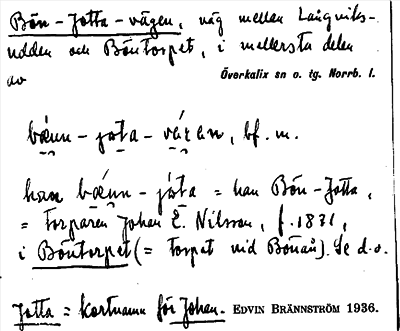 Bön-Jotta-vägen, väg mellan Långviks-
udden och Böntorpet, i mellersta delen
av Överkalix sn o. tg. Norrb. l.
bænn-jota-vägan, bf. m.
han bænn-jåta = han Bön-Jotta,
= torparen Johan E. Nilsson, f. 1831,
i Böntorpet (= torpet vid Bönån). Se d.o.
Jotta = kortnamn för Johan. EDVIN BRÄNNSTRÖM 1936.